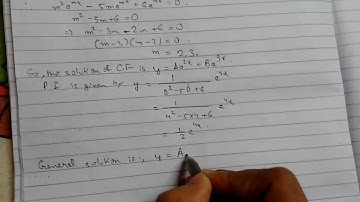 m²e^mx - 5me^mx + 6e^mx = 0
m² - 5m + 6 = 0
⇒ m² - 3m - 2m + 6 = 0
(m-3)(m-2) = 0
m = 2,3.
So, the solution of C.F is y = Ae^2x + Be^3x
P.I is given by y = 1/(D² - 5D + 6) e^4x
= 1/(4² - 5×4 + 6) e^4x
= 1/2 e^4x.
General solution is, y = A